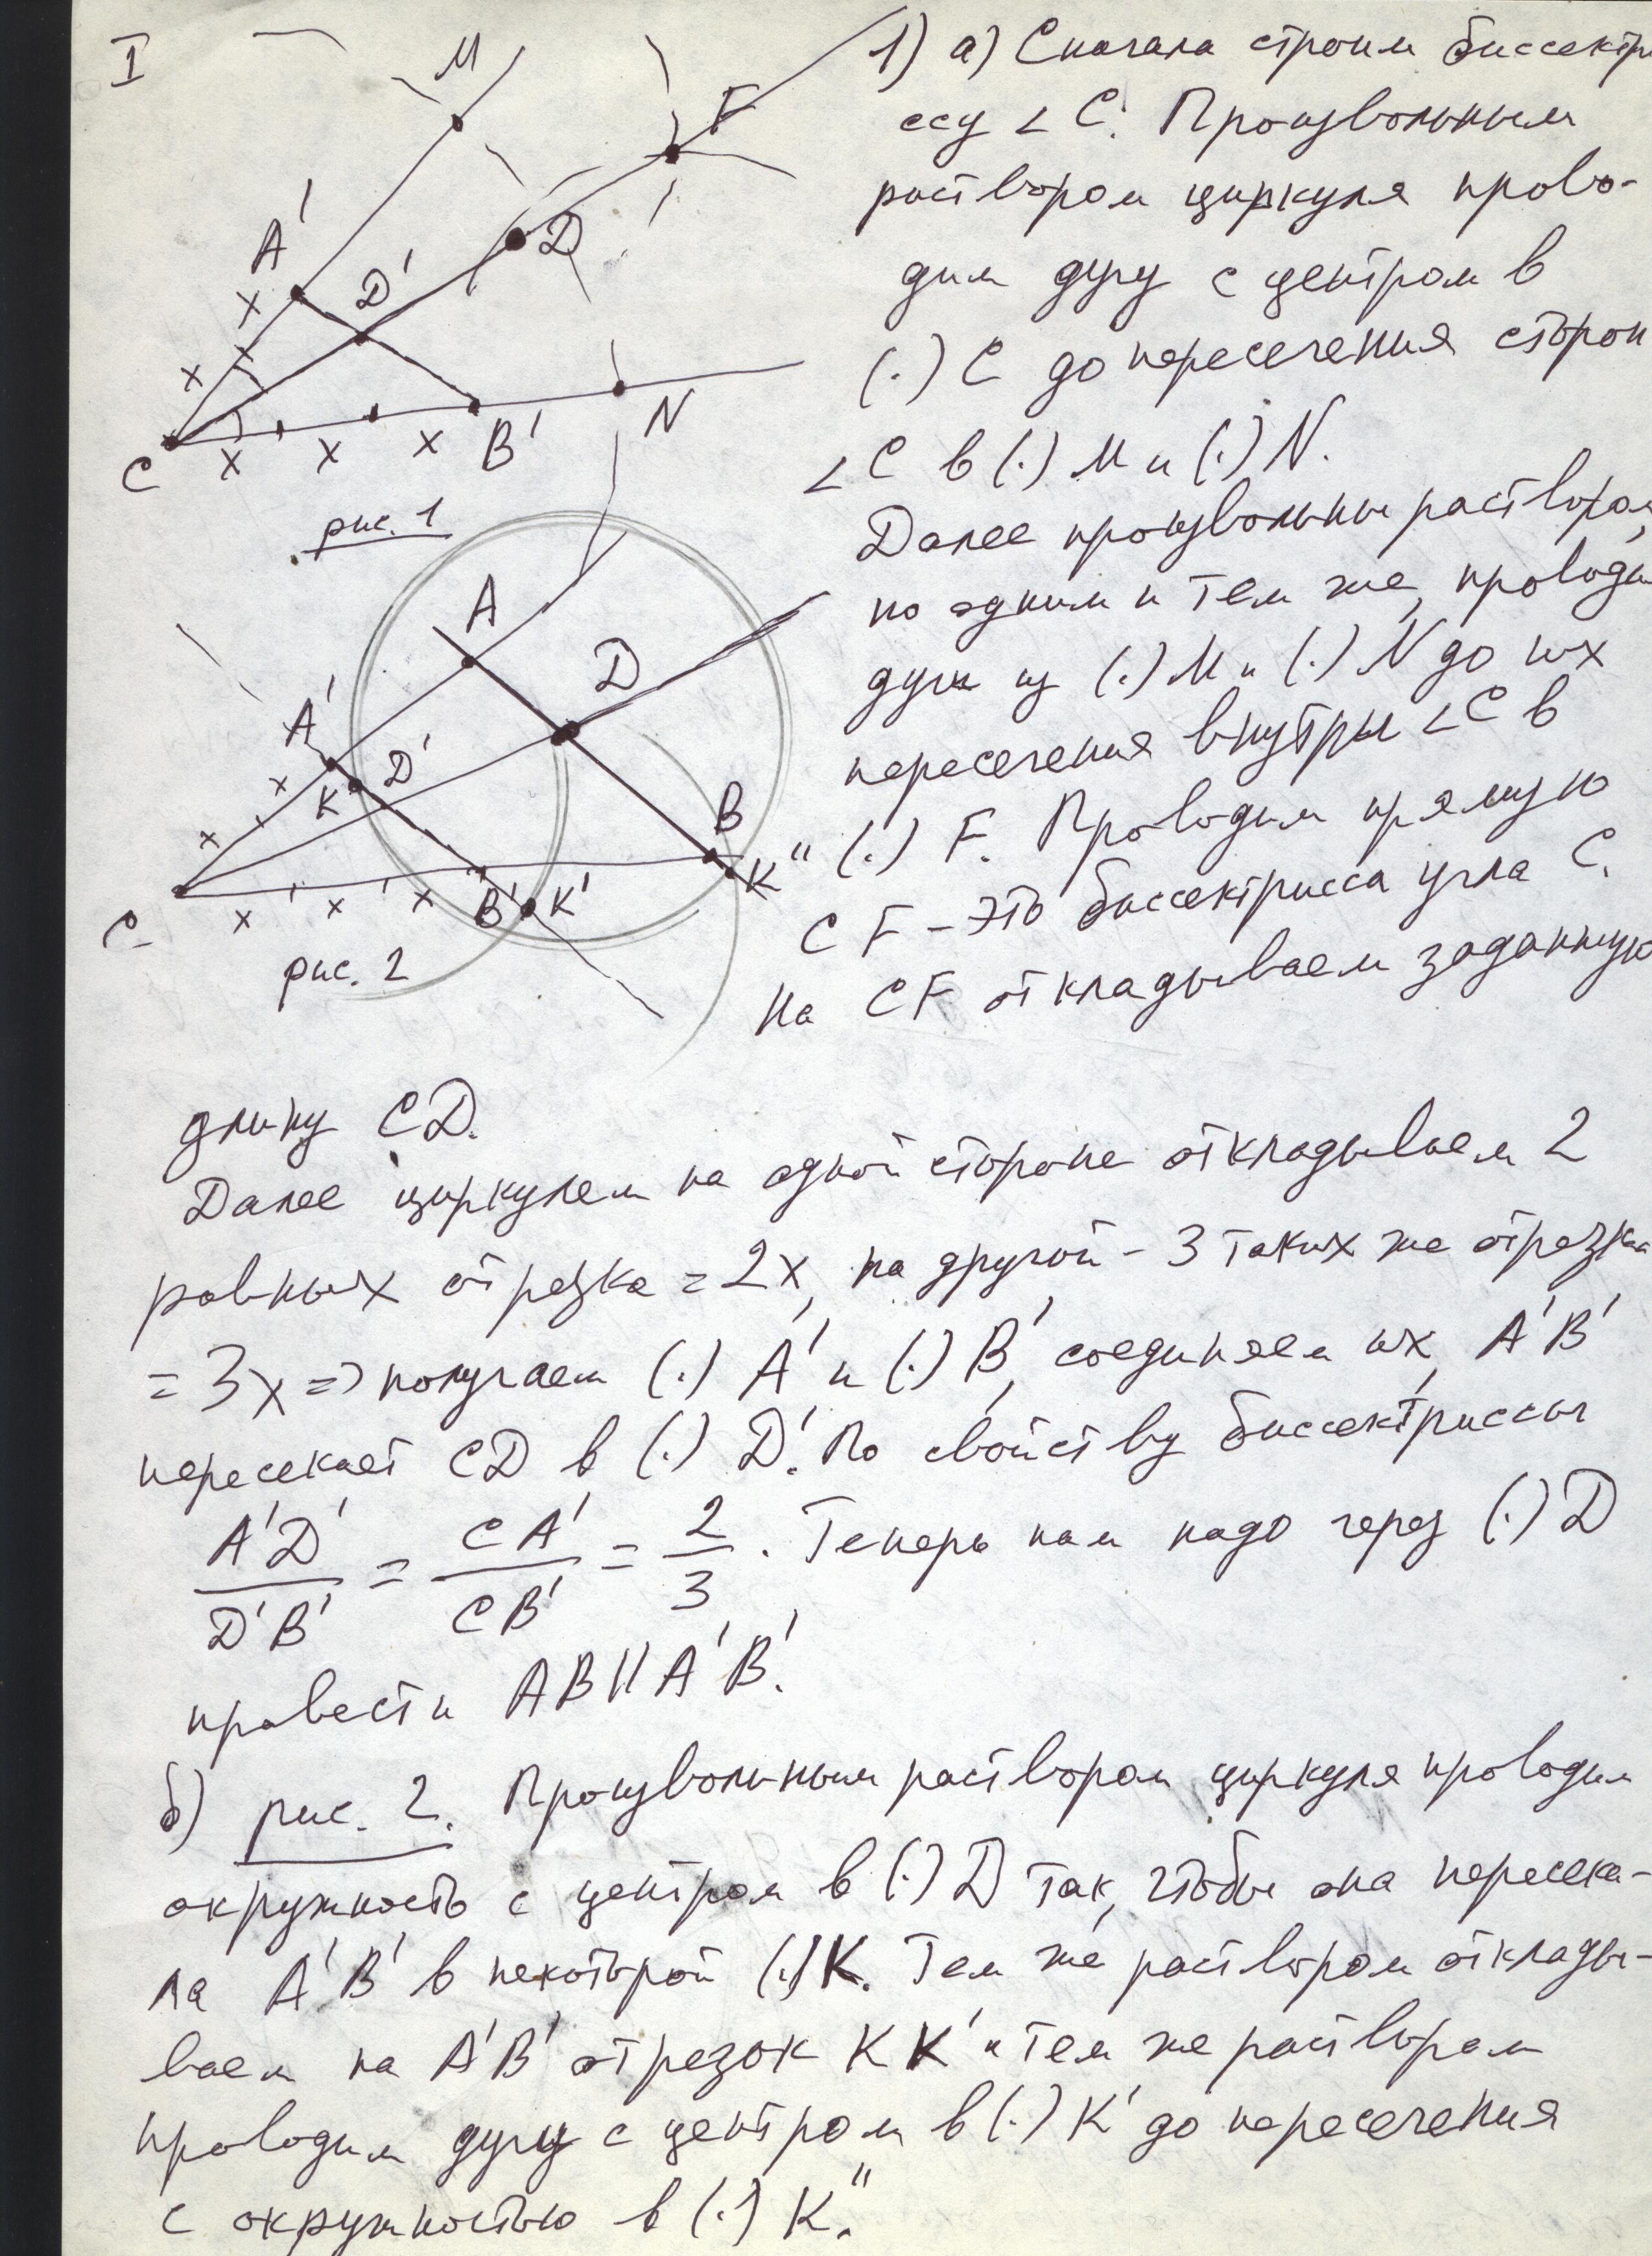 I
M
F
A'
D
D'
x
x
x
x
x
B'
N
C
рис. 1
A
D
A'
D'
K
x
x
B
K"
C
x
x
x
B'
K'
рис. 2
1) а) Сначала строим биссектри
ссу ∠C. Произвольным
раствором циркуля прово-
дим дугу с центром в
(·) C до пересечения сторон
∠C в (·) M и (·) N.
Далее произвольным раствором,
но одним и тем же, проводим
дуги из (·) M и (·) N до их
пересечения внутри ∠C в
(·) F. Проводим прямую
CF – это биссектрисса угла C.
На CF откладываем заданную
длину CD.
Далее циркулем на одной стороне откладываем 2
равных отрезка = 2x, на другой – 3 таких же отрезка
= 3x => получаем (·) A' и (·) B', соединяем их, A'B'
пересекает CD в (·) D'. По свойству биссектриссы
A'D'/D'B' = CA'/CB' = 2/3. Теперь нам надо через (·) D
провести AB || A'B'.
б) рис. 2. Произвольным раствором циркуля проводим
окружность с центром в (·) D так, чтобы она пересека-
ла A'B' в некоторой (·) K. Тем же раствором отклады-
ваем на A'B' отрезок KK' и тем же раствором
проводим дугу с центром в (·) K' до пересечения
с окружностью в (·) K".